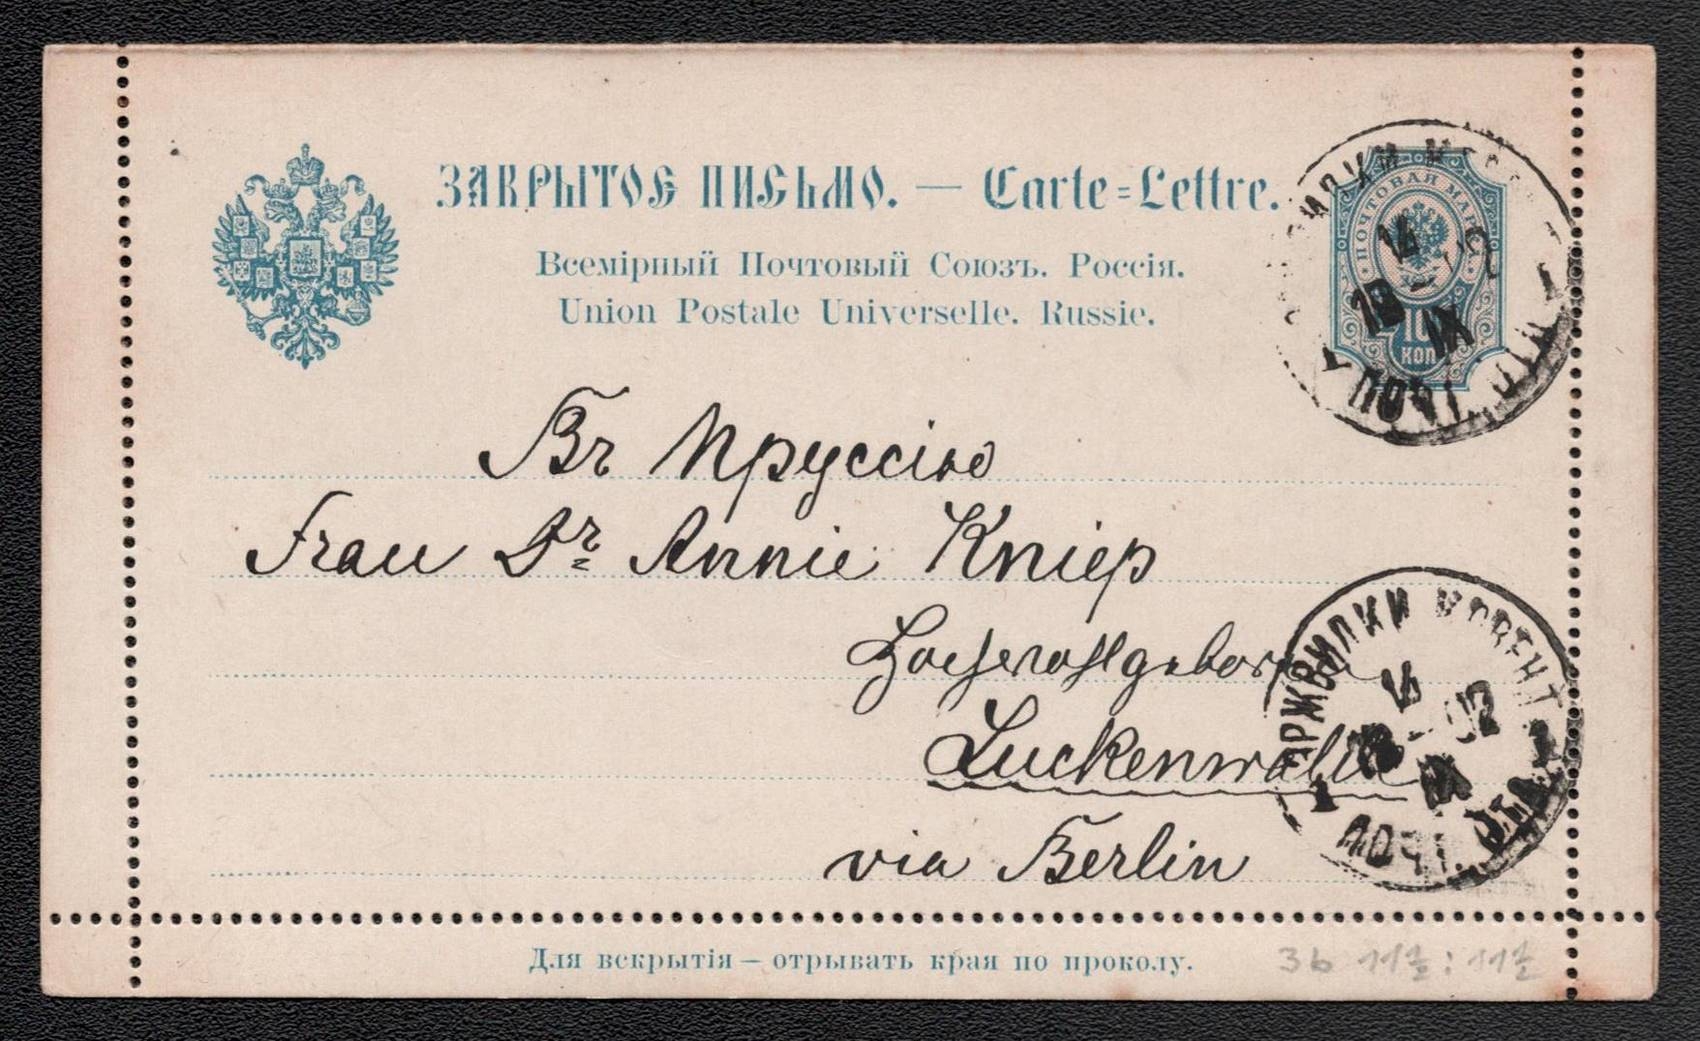 ЗАКРЫТОЕ ПИСЬМО. — Carte=Lettre.
Всемірный Почтовый Союзъ. Россія.
Union Postale Universelle. Russie.
ПОЧТОВАЯ МАРКА
10
КОП
14
IX
Въ Пруссію
Frau Dr. Annie Kniep
Hochwohlgeboren
Luckenwalde
via Berlin
14
02
IX
Для вскрытія — отрывать края по проколу.
3b 11½ : 11½